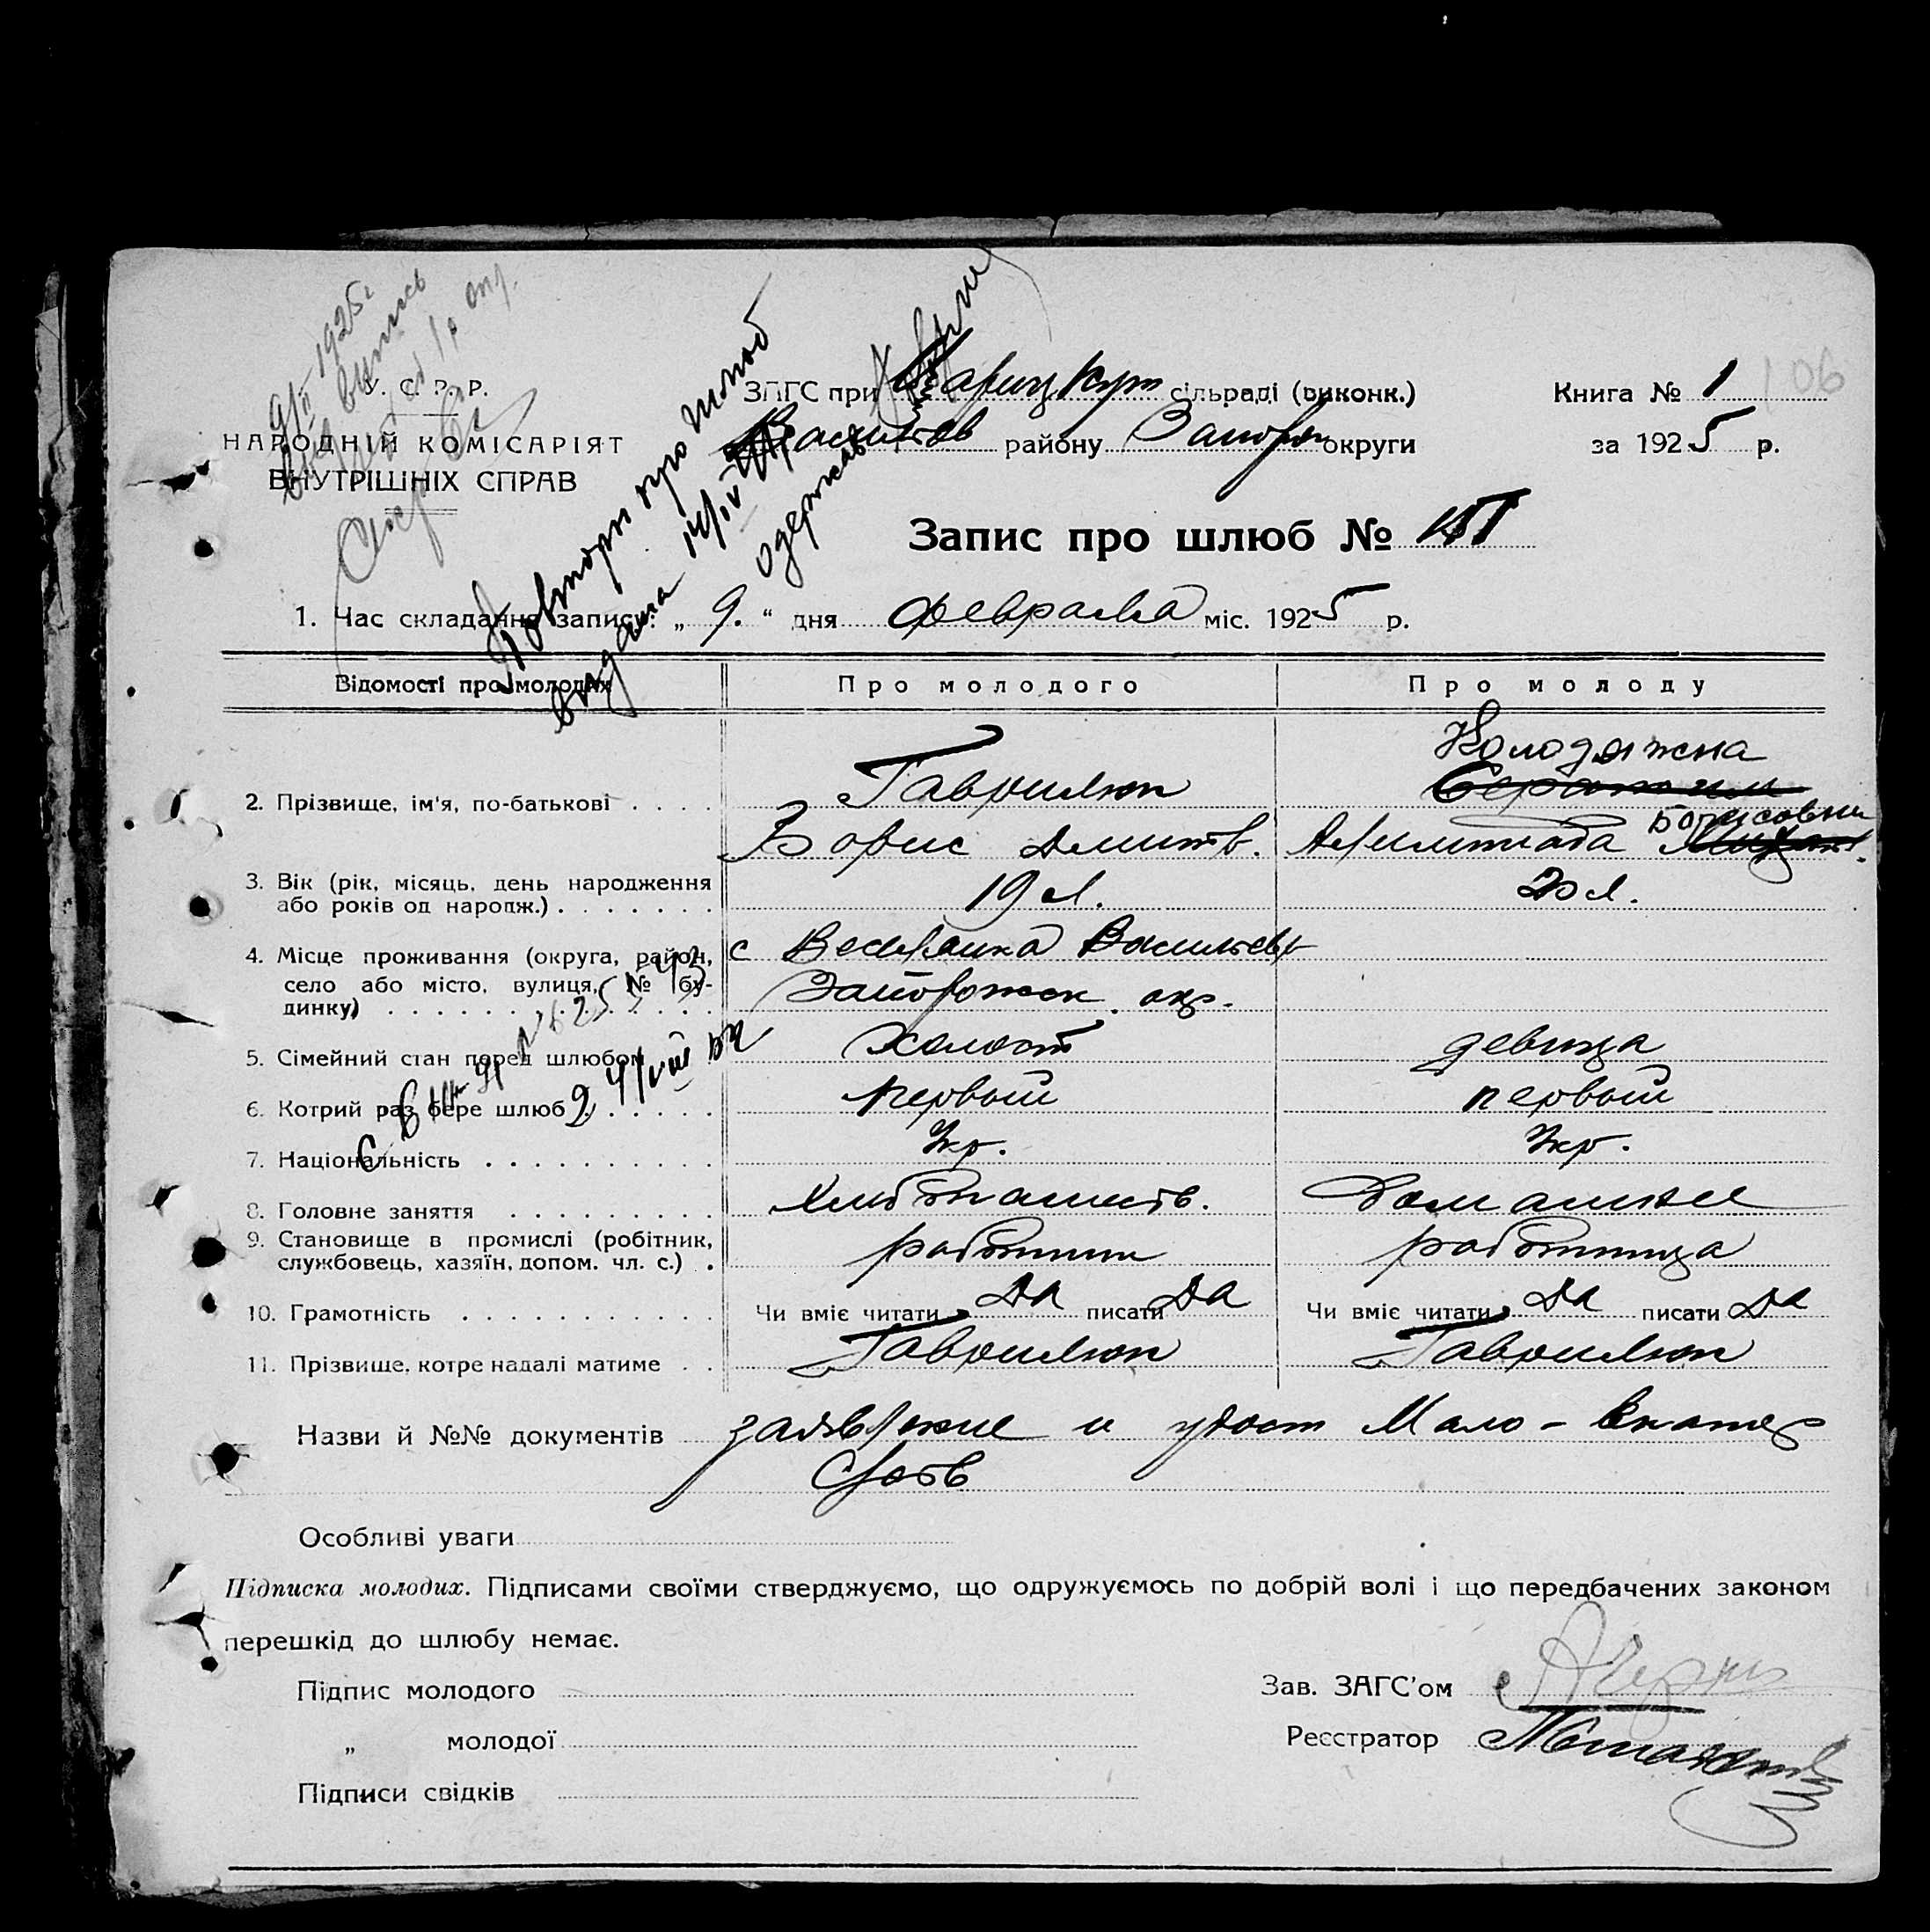 У. С. Р. Р.
НАРОДНІЙ КОМІСАРІЯТ
ВНУТРІШНІХ СПРАВ
9/II 1925г
выпись
Повторн про шлюб
видана 14/IV
одержав
ЗАГС при Кариц Кут сільраді (виконк.)
Васильев району Запор округи
Книга № 1
106
за 1925 р.
Запис про шлюб №
1. Час складання запису: „ 9. “ дня февраля міс. 1925 р.
Відомості про молодих
Про молодого
Про молоду
2. Прізвище, ім'я, по-батькові . . . .
Гаврилюк
Борис Дмитр.
Колодяжна
Борисовна
3. Вік (рік, місяць, день народження
або років од народж.) . . . . . . .
19 л.
20 л.
4. Місце проживання (округа, район,
село або місто, вулиця, № бу-
динку) . . . . . . . . . . . . . .
с Веселянка Васильевк
Запорожск. окр.
5. Сімейний стан перед шлюбом
холост
девица
6. Котрий раз бере шлюб . . . . .
первый
первый
7. Національність . . . . . . . . . .
Укр.
Укр.
8. Головне заняття . . . . . . . . .
хлебопашеств.
домашнее
9. Становище в промислі (робітник,
службовець, хазяїн, допом. чл. с.) .
работник
работница
10. Грамотність . . . . . . . . . . .
Чи вміє читати да писати да
Чи вміє читати да писати да
11. Прізвище, котре надалі матиме . .
Гаврилюк
Гаврилюк
Назви й №№ документів заявление и удост Мало-Екатер
С/сов
Особливі уваги
Підписка молодих. Підписами своїми стверджуємо, що одружуємось по добрій волі і що передбачених законом
перешкід до шлюбу немає.
Підпис молодого
„ молодої
Підписи свідків
Зав. ЗАГС'ом
Реєстратор